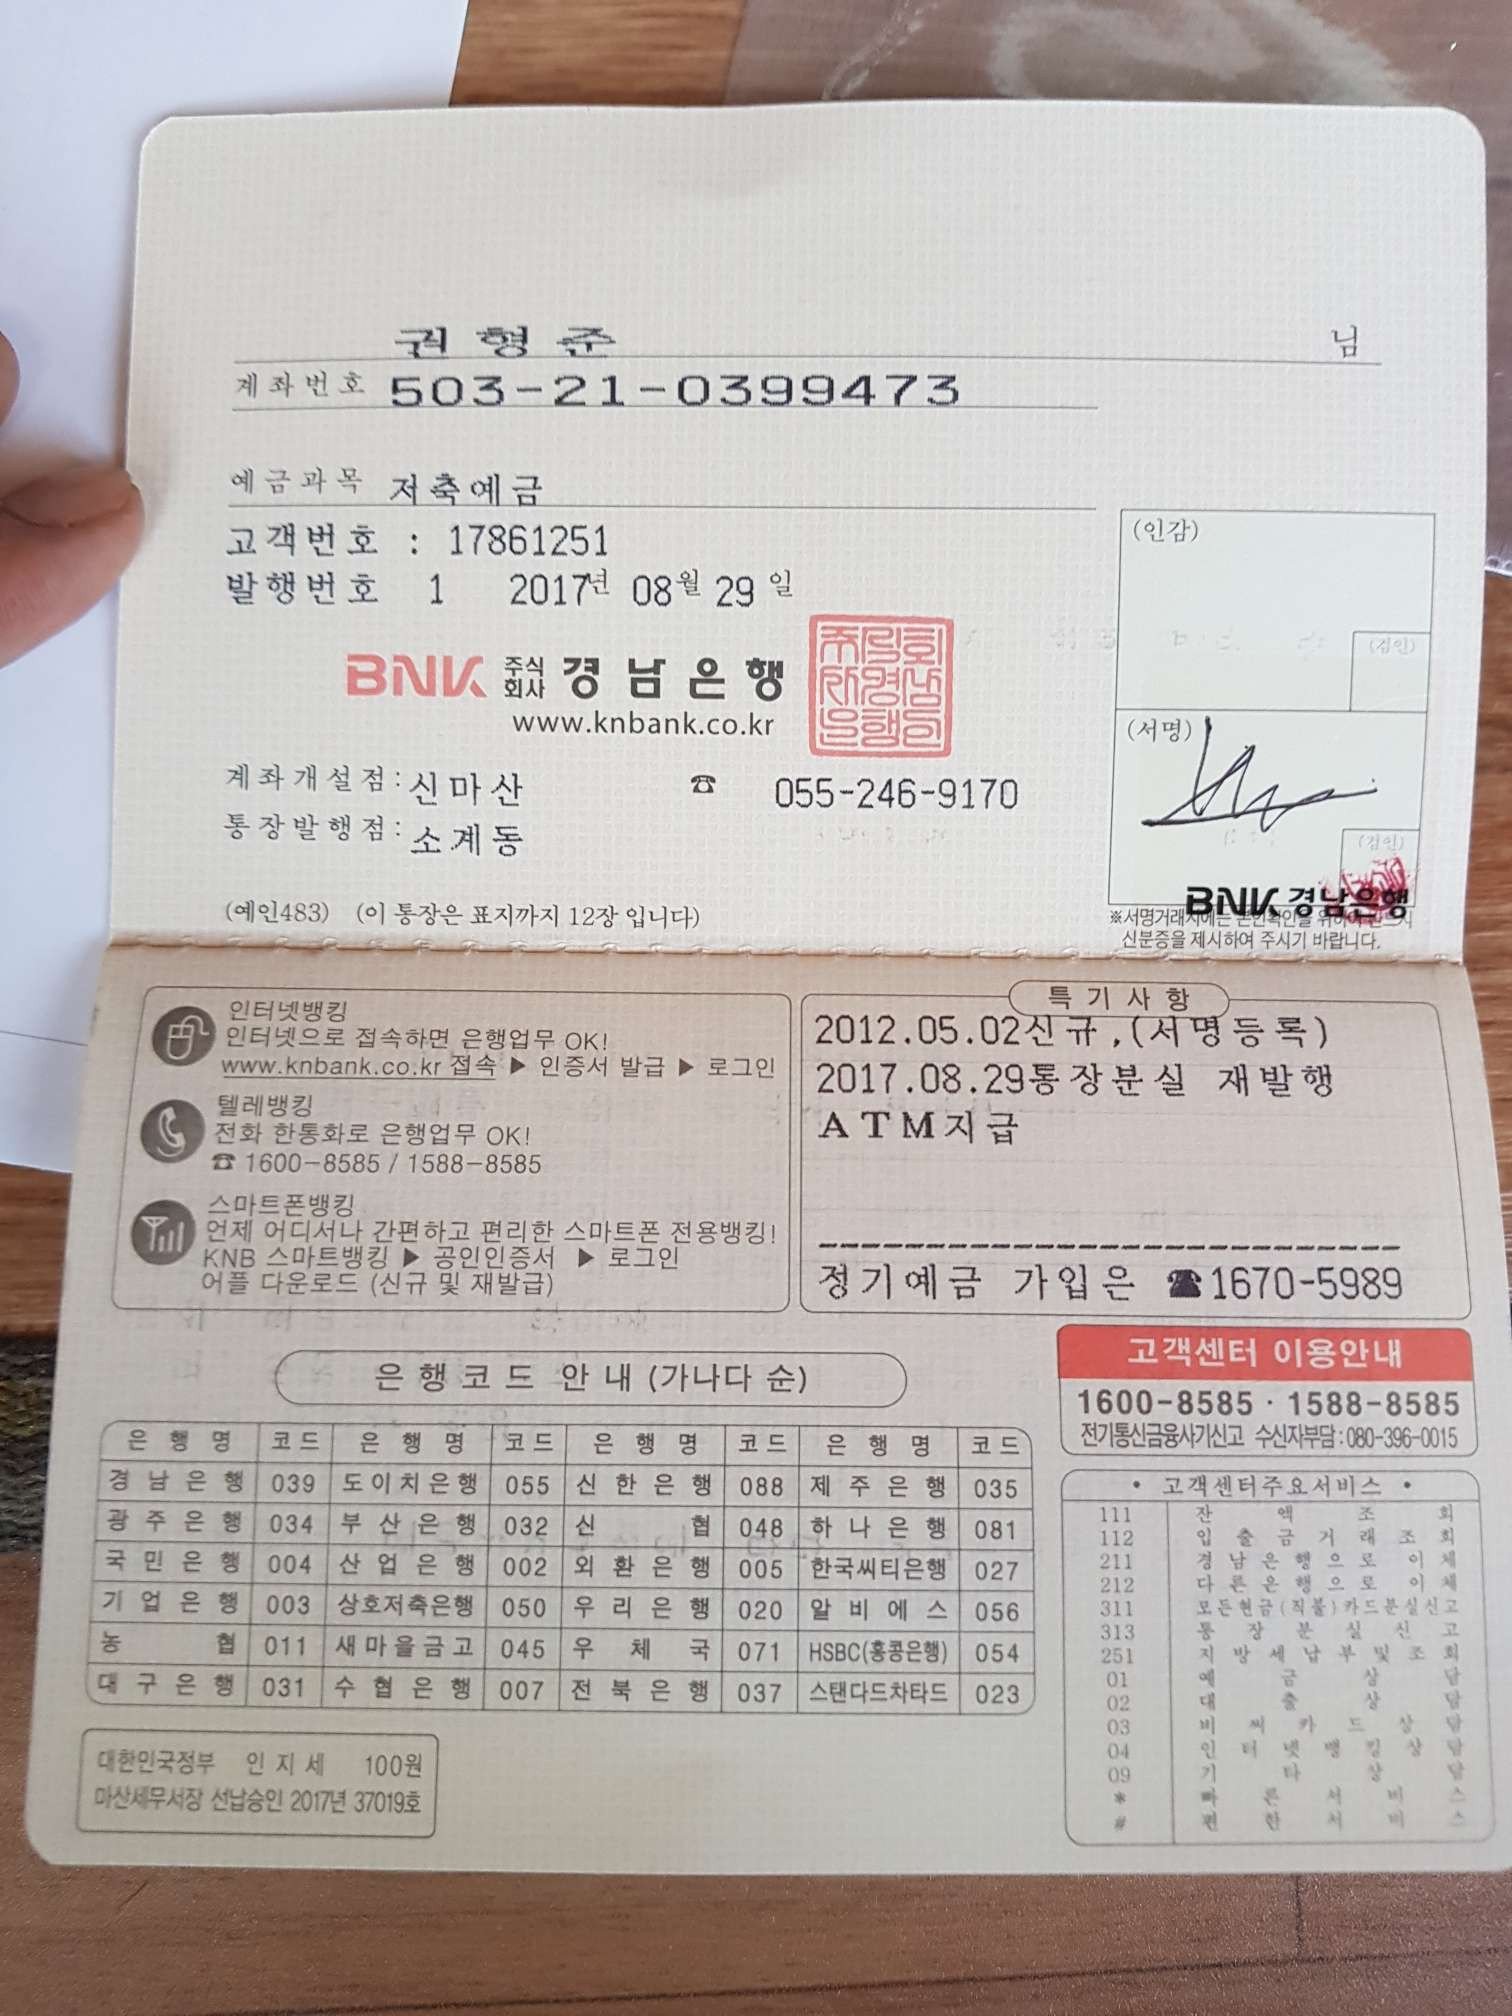 권 형 준 님
계좌번호 503-21-0399473
예금과목 저축예금
고객번호 : 17861251
발행번호 1 2017년 08월 29일
(인감)
(검인)
BNK 주식회사 경남은행
www.knbank.co.kr
(서명)
계좌개설점: 신마산 ☎ 055-246-9170
통장발행점: 소계동
(검인)
BNK 경남은행
(예인483) (이 통장은 표지까지 12장 입니다)
※서명거래시에는 본인확인을 위하여 반드시
신분증을 제시하여 주시기 바랍니다.
인터넷뱅킹
인터넷으로 접속하면 은행업무 OK!
www.knbank.co.kr 접속 ▶ 인증서 발급 ▶ 로그인
텔레뱅킹
전화 한통화로 은행업무 OK!
☎ 1600-8585 / 1588-8585
스마트폰뱅킹
언제 어디서나 간편하고 편리한 스마트폰 전용뱅킹!
KNB 스마트뱅킹 ▶ 공인인증서 ▶ 로그인
어플 다운로드 (신규 및 재발급)
특기사항
2012.05.02신규,(서명등록)
2017.08.29통장분실 재발행
ATM지급
정기예금 가입은 ☎1670-5989
은행코드 안내 (가나다 순)
은행명 코드 은행명 코드 은행명 코드 은행명 코드
경남은행 039 도이치은행 055 신한은행 088 제주은행 035
광주은행 034 부산은행 032 신협 048 하나은행 081
국민은행 004 산업은행 002 외환은행 005 한국씨티은행 027
기업은행 003 상호저축은행 050 우리은행 020 알비에스 056
농협 011 새마을금고 045 우체국 071 HSBC(홍콩은행) 054
대구은행 031 수협은행 007 전북은행 037 스탠다드차타드 023
고객센터 이용안내
1600-8585 · 1588-8585
전기통신금융사기신고 수신자부담:080-396-0015
• 고객센터주요서비스 •
111 잔액조회
112 입출금거래조회
211 경남은행으로 이체
212 다른은행으로 이체
311 모든현금(직불)카드분실신고
313 통장분실신고
251 지방세납부및조회
01 예금상담
02 대출상담
03 비씨카드상담
04 인터넷뱅킹상담
09 기타상담
* 빠른서비스
# 편한서비스
대한민국정부 인지세 100원
마산세무서장 선납승인 2017년 37019호